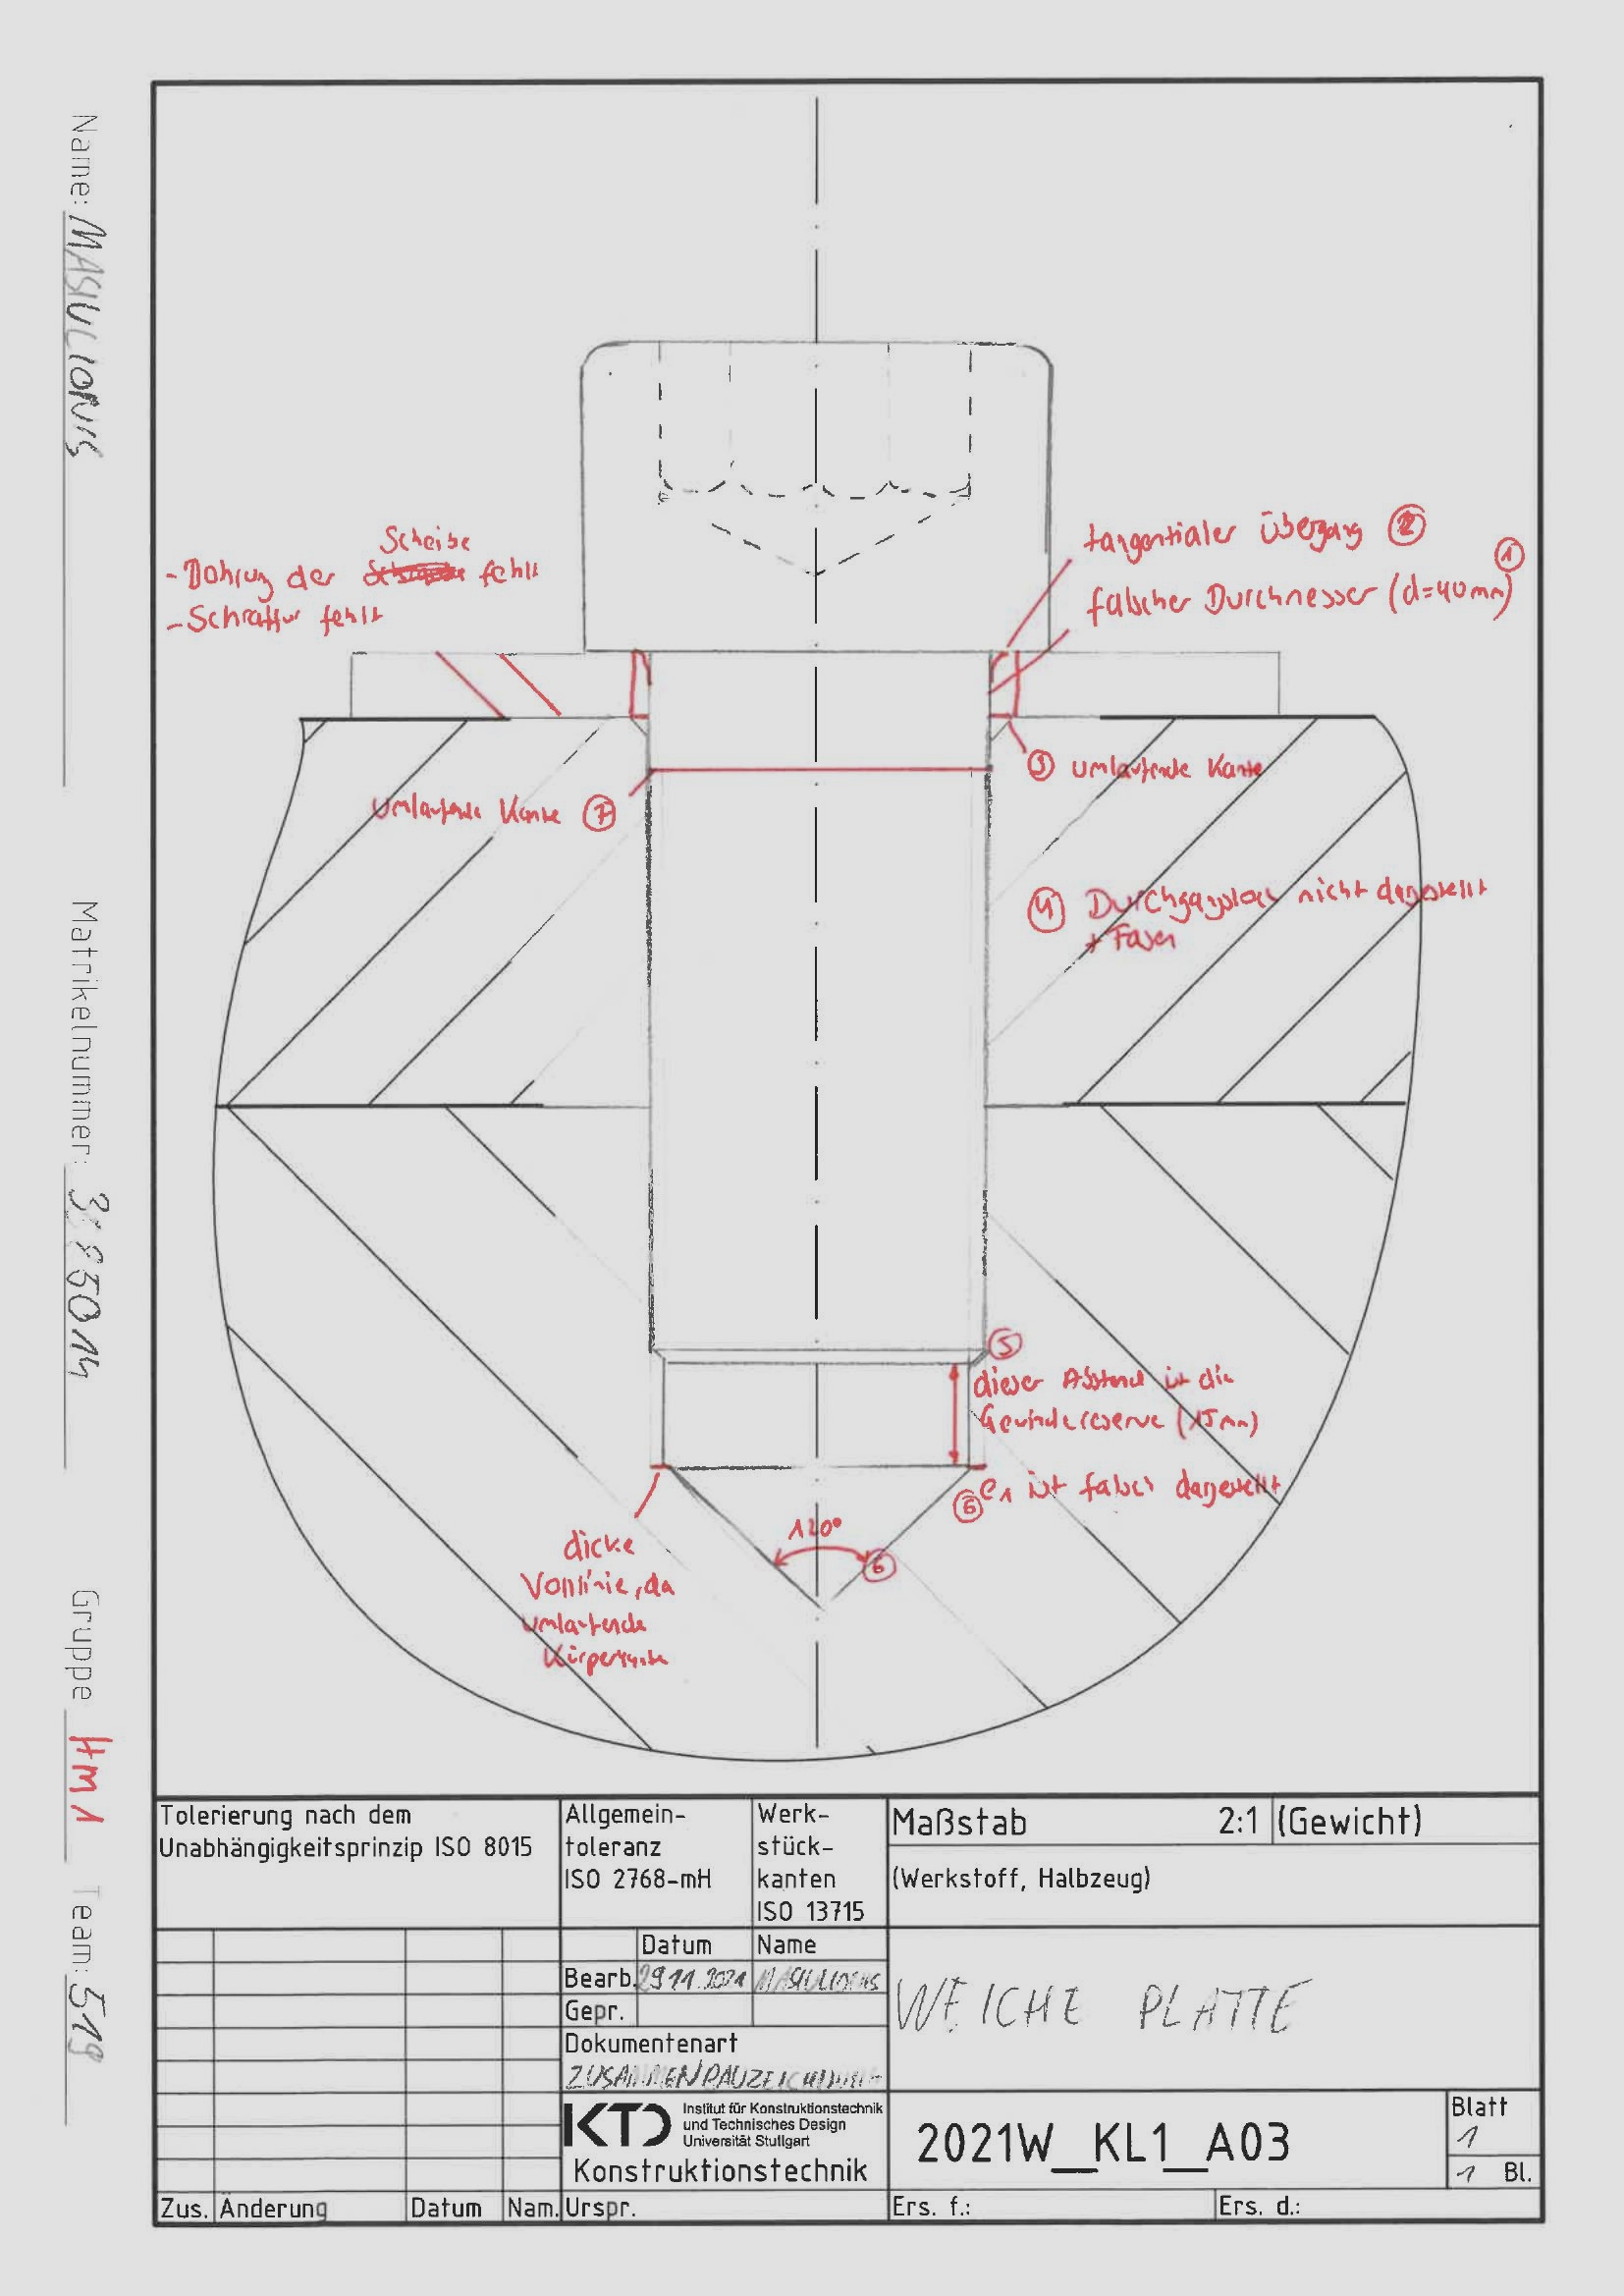 Name: MASIULIONIS
Matrikelnummer:
Gruppe HM1 Team: 519
Scheibe
der fehlt
- Schraffur fehlt
tangentialer Übergang ②
①
falscher Durchmesser (d=40mm)
③ umlaufende Kante
umlaufende Kante ⑦
④ Durchgangsloch nicht dargestellt
+ Fasen
⑤
dieser Abstand ist die
Gewindereserve (15mm)
⑥ e1 ist falsch dargestellt
120°
⑥
dicke
Volllinie, da
umlaufende
Körperkante
Tolerierung nach dem
Unabhängigkeitsprinzip ISO 8015
Allgemein-
toleranz
ISO 2768-mH
Werk-
stück-
kanten
ISO 13715
Maßstab 2:1 (Gewicht)
(Werkstoff, Halbzeug)
Datum Name
Bearb. 29.11.2021 MASIULIONIS
Gepr.
Dokumentenart
ZUSAMMENBAUZEICHNUNG
WEICHE PLATTE
KTD Institut für Konstruktionstechnik
und Technisches Design
Universität Stuttgart
Konstruktionstechnik
2021W_KL1_A03
Blatt
1
1 Bl.
Zus. Änderung Datum Nam. Urspr. Ers. f.: Ers. d.: